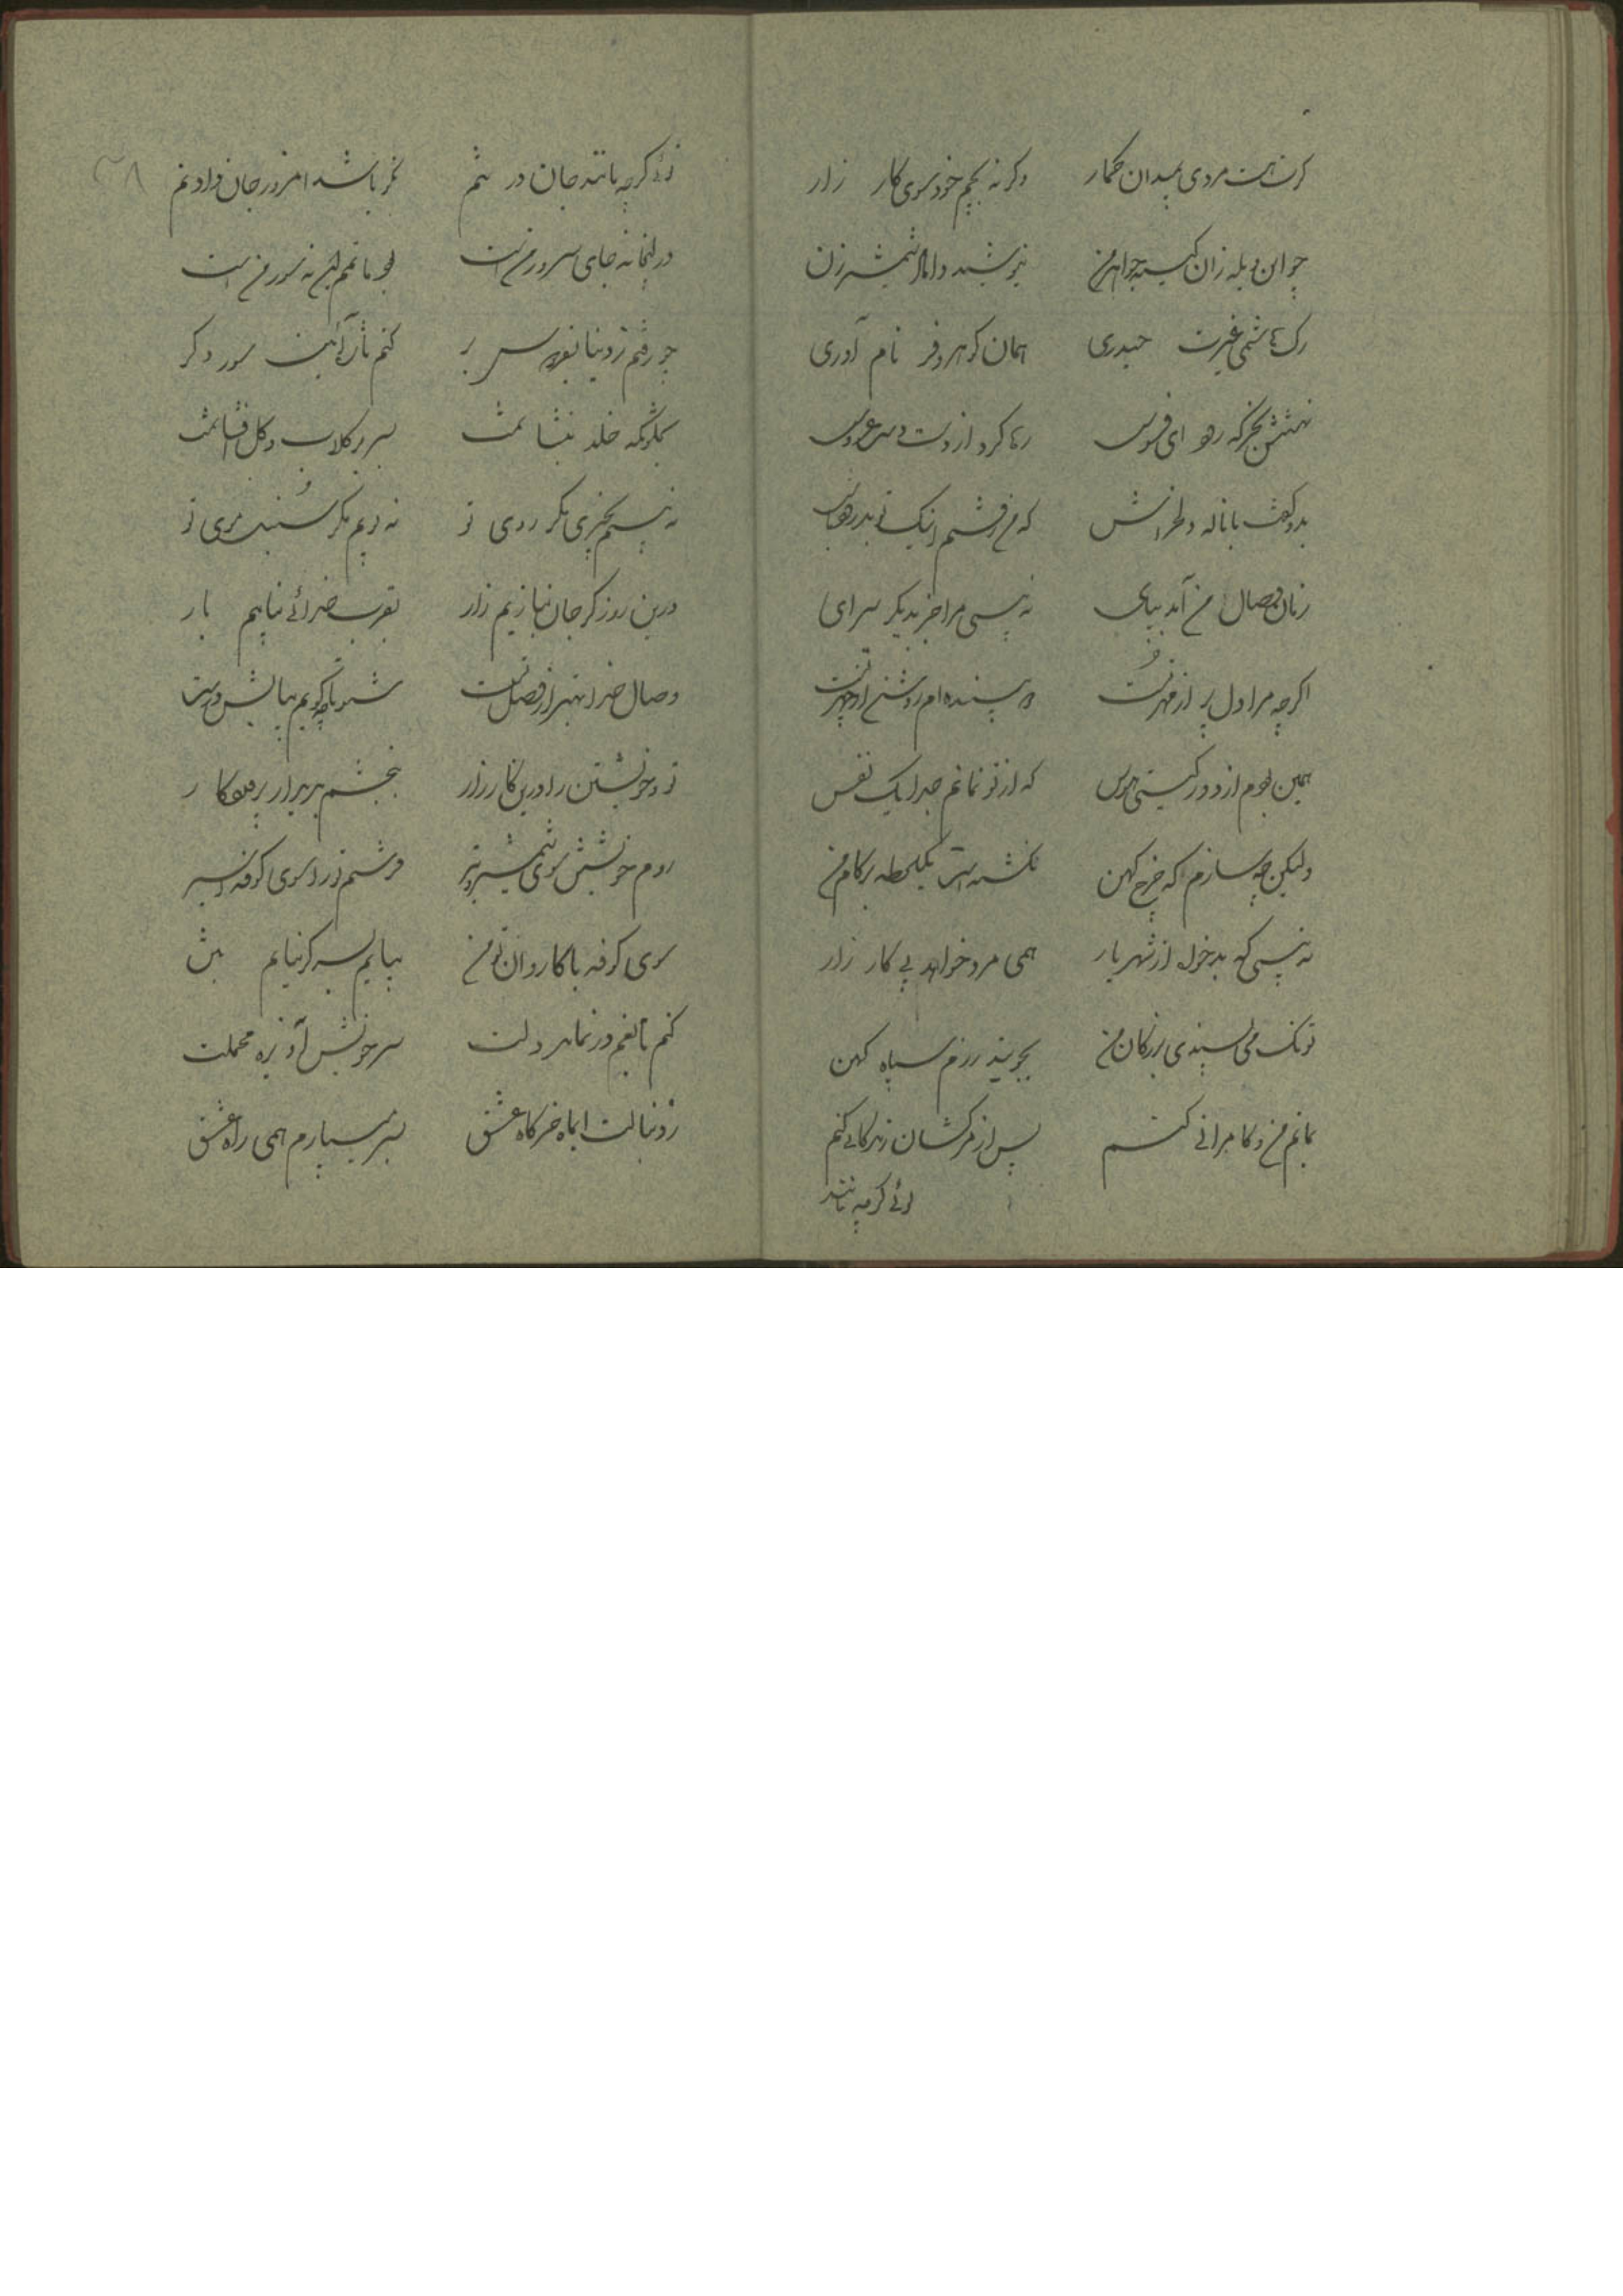 گرت هست مردی بمیدان گمار وگرنه بچم خود سوی کار زار
چو این یله زان کینه جو اهرمن نیوشید داماد شمشیرزن
رگ هاشمی غیرت حیدری همان گوهر و فر نام آوری
بخرگه رها کرد از دست دست عروس
بدو گفت با ناله دلخراش که من رفتم اینک تو بدرود باش
زمان وصال من آمد بپای نه بینی مرا جز بدیگر سرای
اگرچه مرا دل پر از مهر تست دو بیننده ام روشن از چهر تست
همین بودم از دور گیتی هوس که از تو نمانم جدا یک نفس
ولیکن چه سازم که چرخ کهن نگشته است یکلحظه بر کام من
نه بینی که بدخواه از شهریار همی مرد خواهد پی کار زار
تو ننگ می پسندی بزرگان من بجویند رزم سپاه کهن
بمانم من و کامرانی کنم پس از مرگشان زندگانی کنم
نئی گرچه مانند
نئی گرچه مانند جان در تنم مگر باشد امروز جان دادنم
در اینجا نه جای سرور من است بود ماتم این نه سور من است
چو رفتم ز دنیا بفردوس بر کنم تازه آئین سور دگر
بگلزنگه خلد بنشانمت بسر بر گلاب و گل افشانمت
نه بینم بخیری مگر روی تو نه بویم مگر سنبل موی تو
درین روز گر جان نبازیم زار بقرب خدائی نیابیم بار
وصال خدا بهتر از وصل تست شنو تا چه گویم بپاسخ درست
تو چون خویشتن را درین کارزار
روم خویش سوی شمشیر و تیر فرستم ترا سوی کوفه اسیر
سوی کوفه با کاروان تو من بیایم بسر گر نیایم بتن
کنم تا بغم در نماند دلت سر خویش آویزه محملت
ز دنبالت ای ماه خرگاه عشق بسر میسپارم همی راه عشق